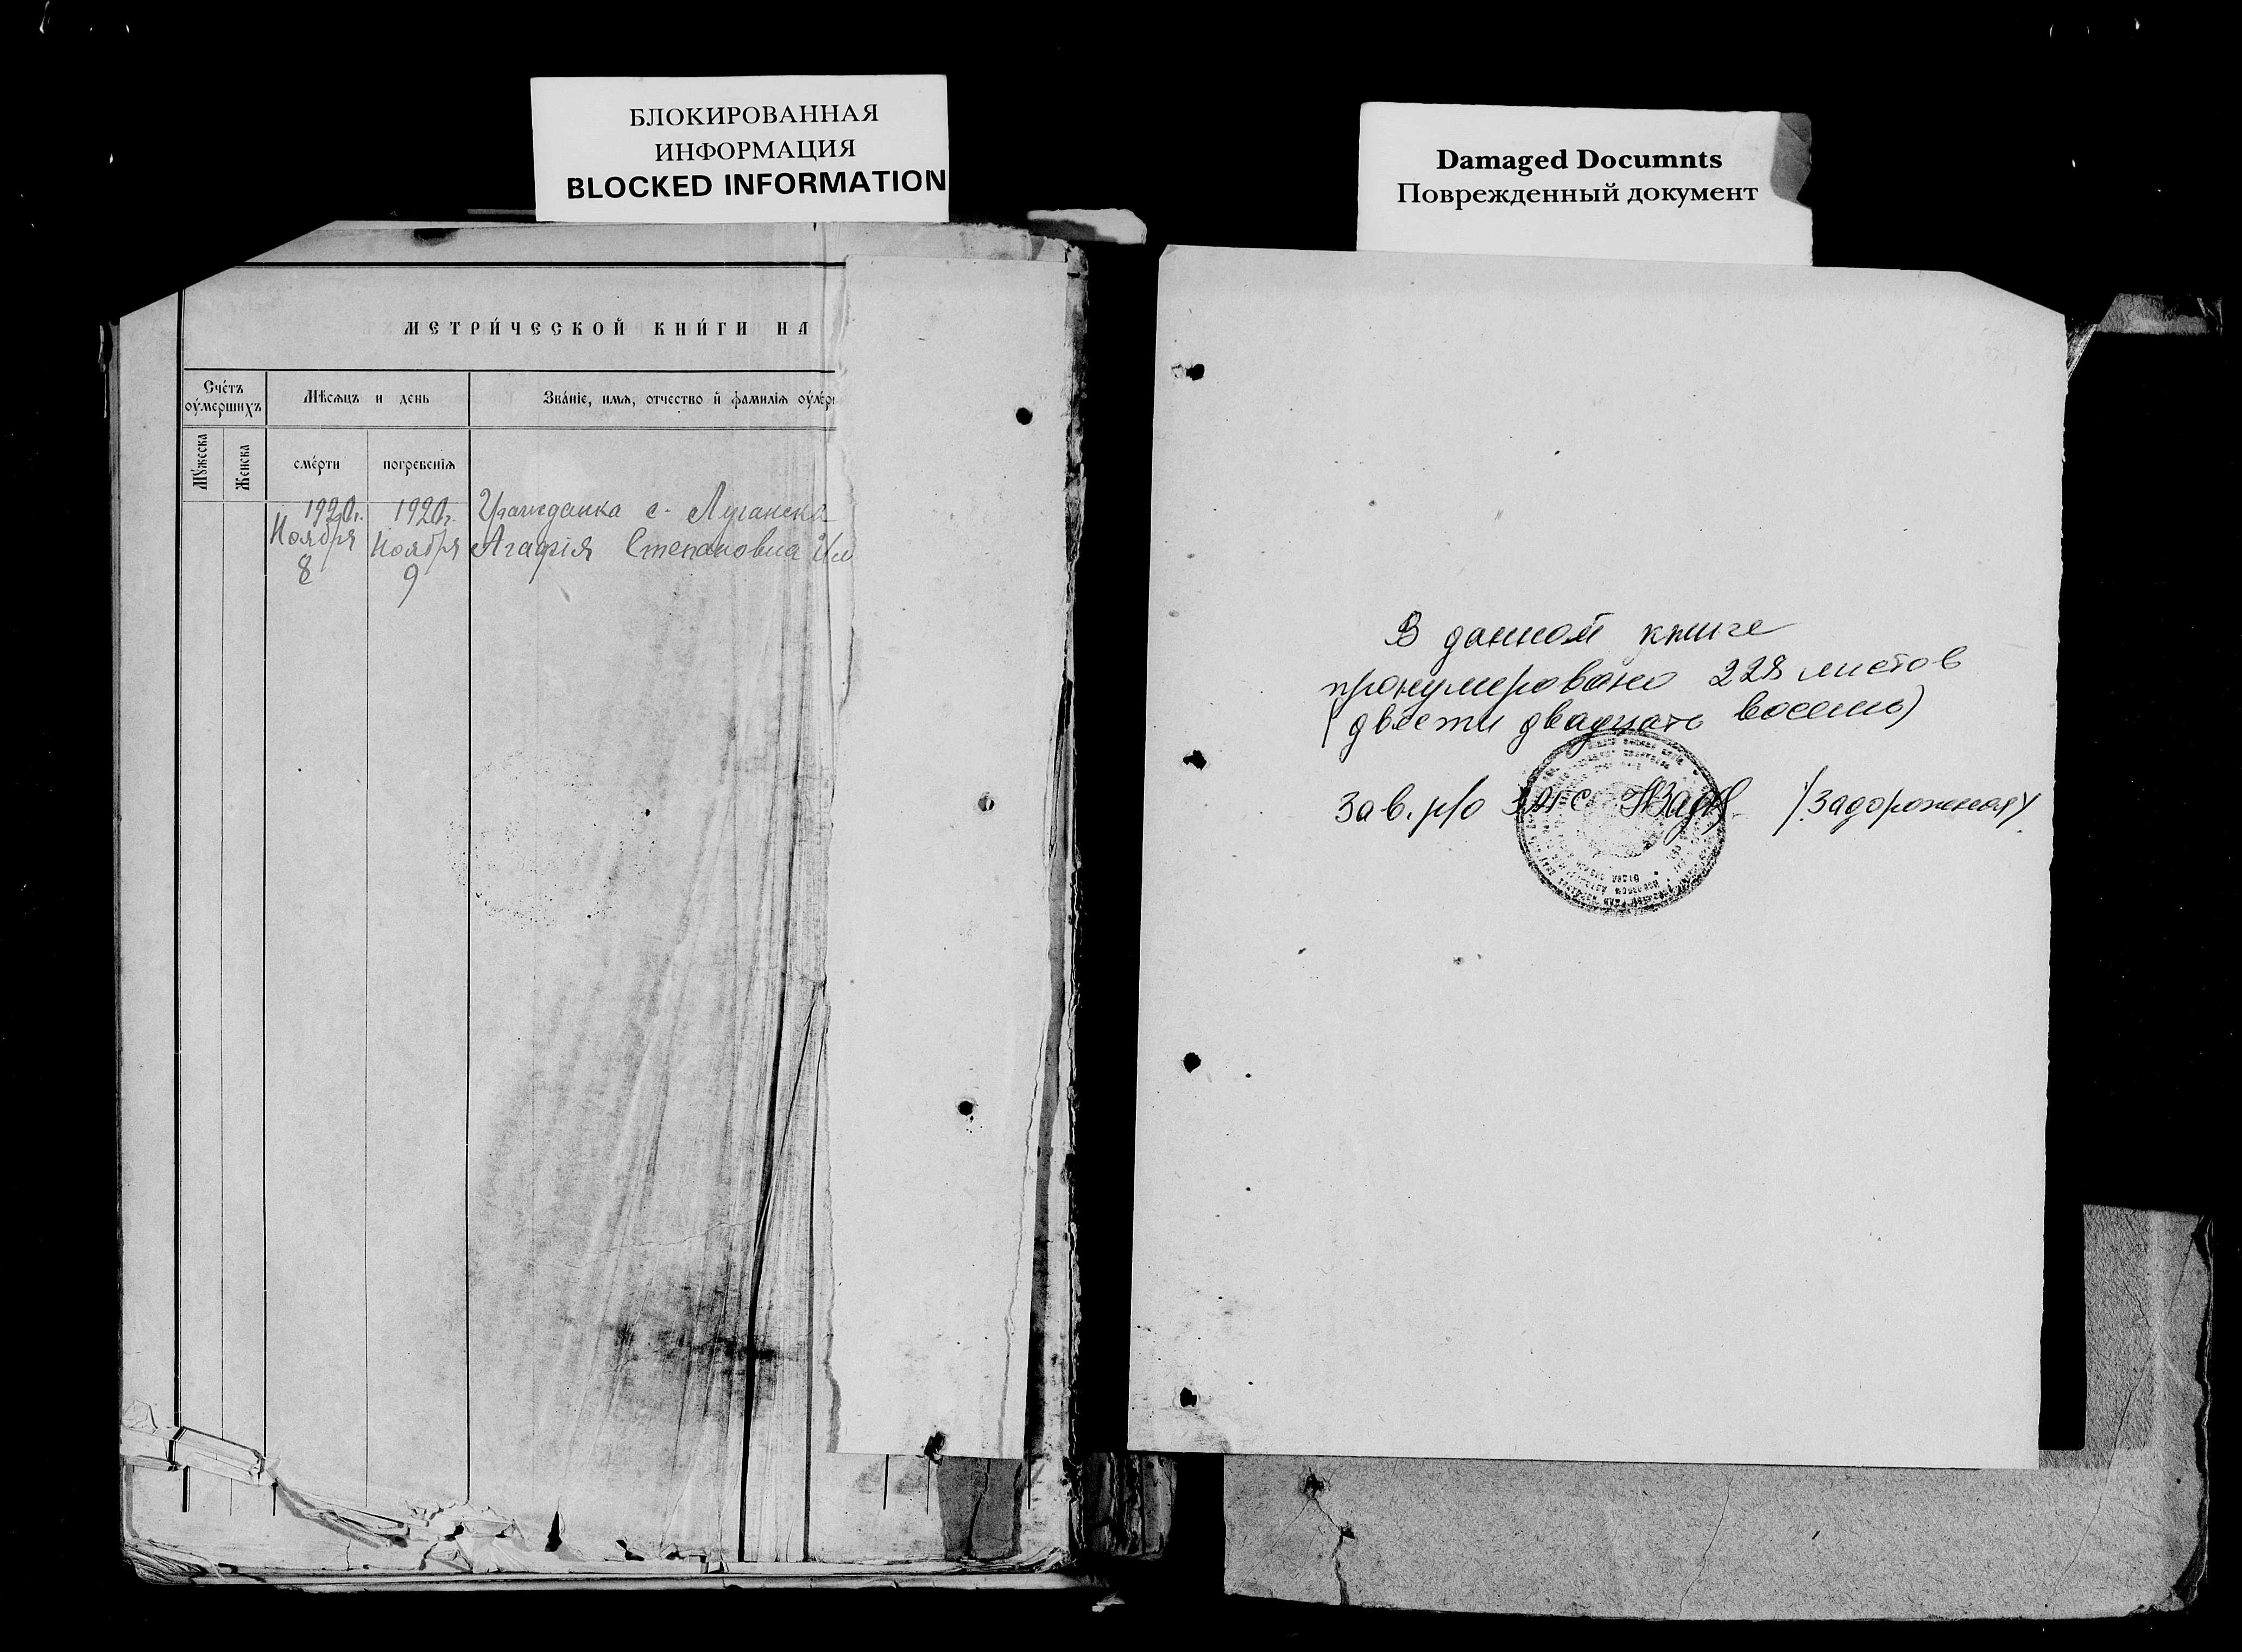 БЛОКИРОВАННАЯ
ИНФОРМАЦИЯ
BLOCKED INFORMATION
Damaged Documnts
Поврежденный документ
МЕТРИ́ЧЕСКОЙ КНИ́ГИ НА
Сче́тъ
оу́мершихъ
Мѣсѧцъ и день
Зва́нїе, имѧ, отчество и҆ фамилїѧ оу́мер
Му́жеска
Женска
сме́рти
погребенїѧ
1920г.
Ноября
8
1920г.
Ноября
9
Гражданка с. Луганска
Агафія Степановна
В данной книге
пронумеровано 228 листов
(двести двадцать восемь)
Зав. р/о загс /Задорожная/